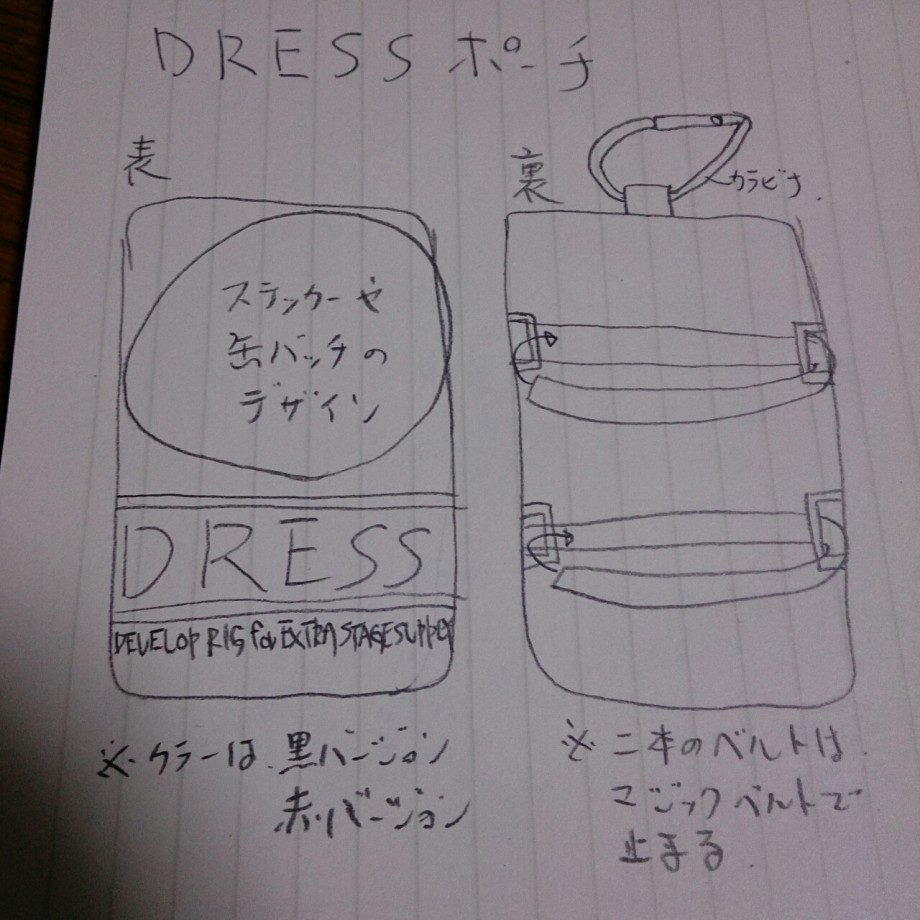 DRESS ポーチ
表
ステッカーや
缶バッチの
デザイン
DRESS
DEVELOP RIG for EXTRA STAGE SUPPLY
※カラーは 黒バージョン
赤バージョン
裏
カラビナ.
※二本のベルトは
マジックベルトで
止まる.